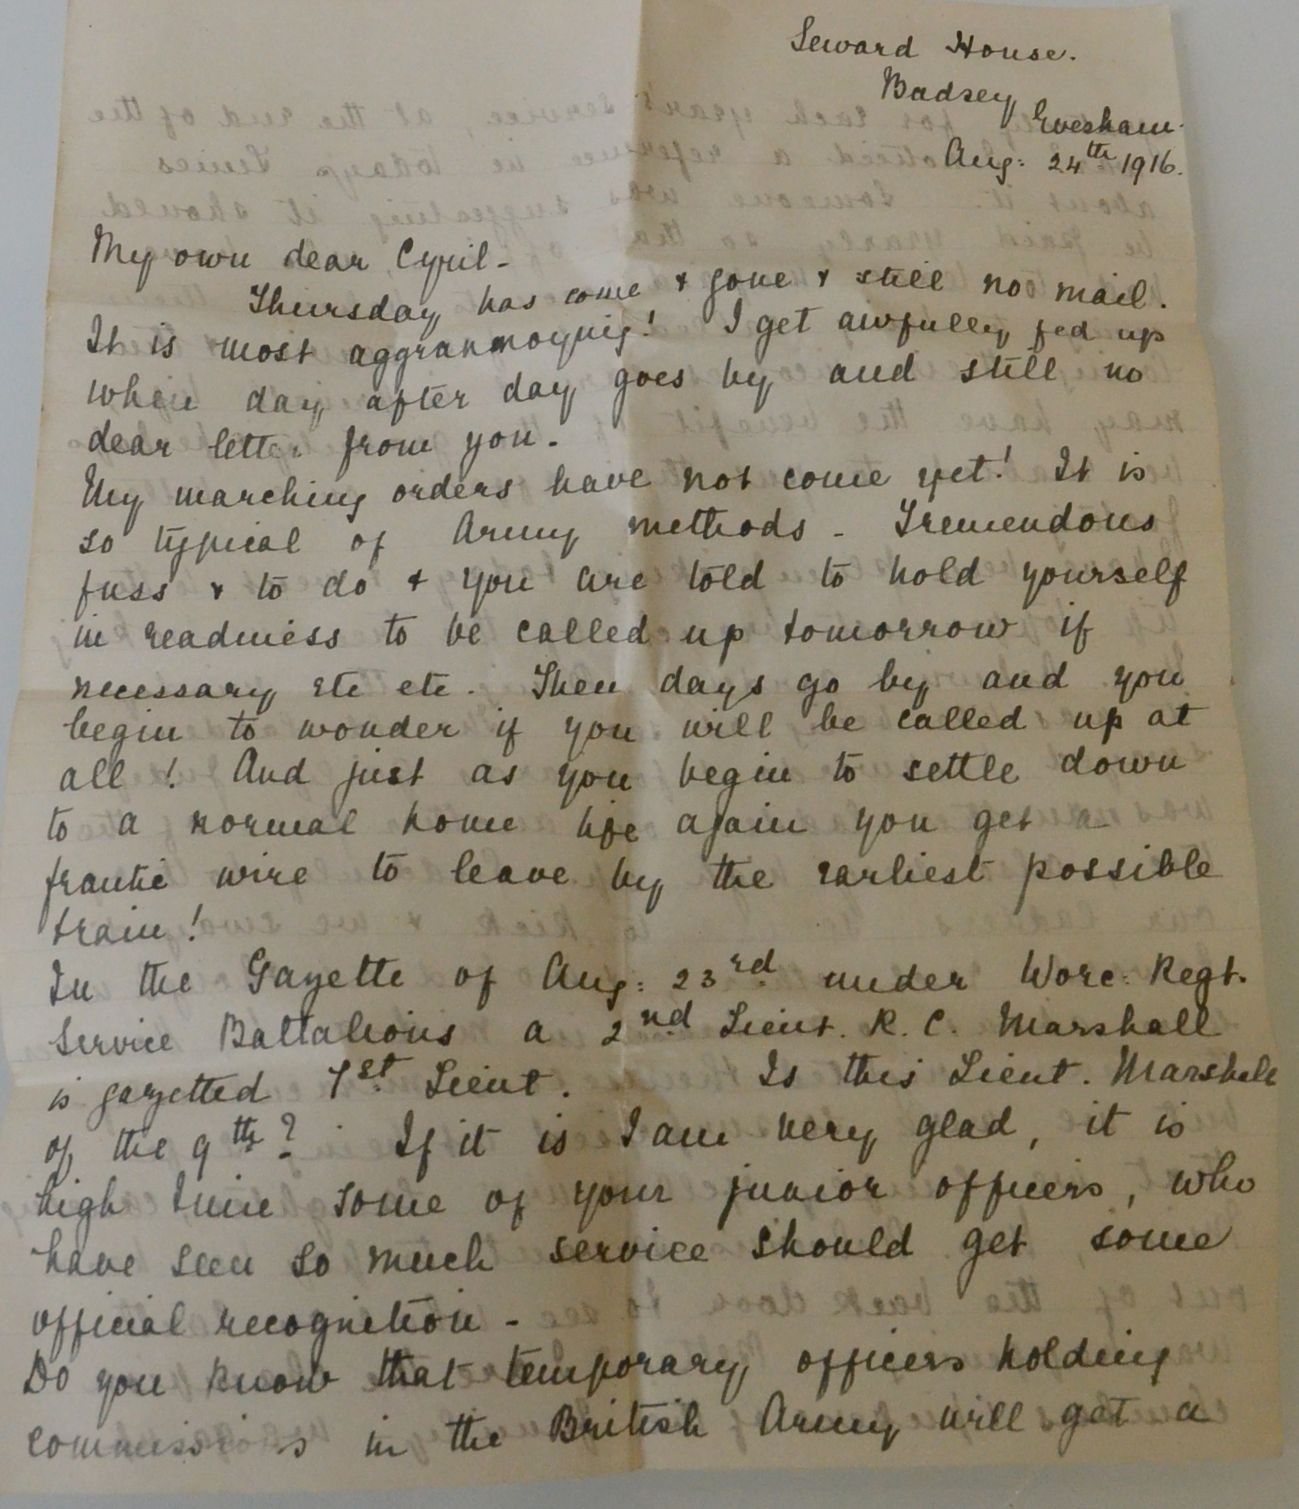 Seward House.
Badsey
Evesham.
Aug: 24th 1916.
My own dear Cyril -
Thursday has come & gone & still no mail.
It is most aggranmoynig! I get awfully fed up
when day after day goes by and still no
dear letter from you -
My marching orders have not come yet! It is
so typical of Army methods - Tremendous
fuss & to do & you are told to hold yourself
in readiness to be called up tomorrow if
necessary etc etc. Then days go by and you
begin to wonder if you will be called up at
all! And just as you begin to settle down
to a normal home life again you get a
frantic wire to leave by the earliest possible
train!
In the Gazette of Aug: 23rd under Worc: Regt.
Service Battalions a 2nd Lieut. R. C. Marshall
is gazetted 1st Lieut. Is this Lieut. Marshall
of the 9th? If it is I am very glad, it is
high time some of your junior officers, who
have seen so much service should get some
official recognition -
Do you know that temporary officers holding
commissions in the British Army will get a